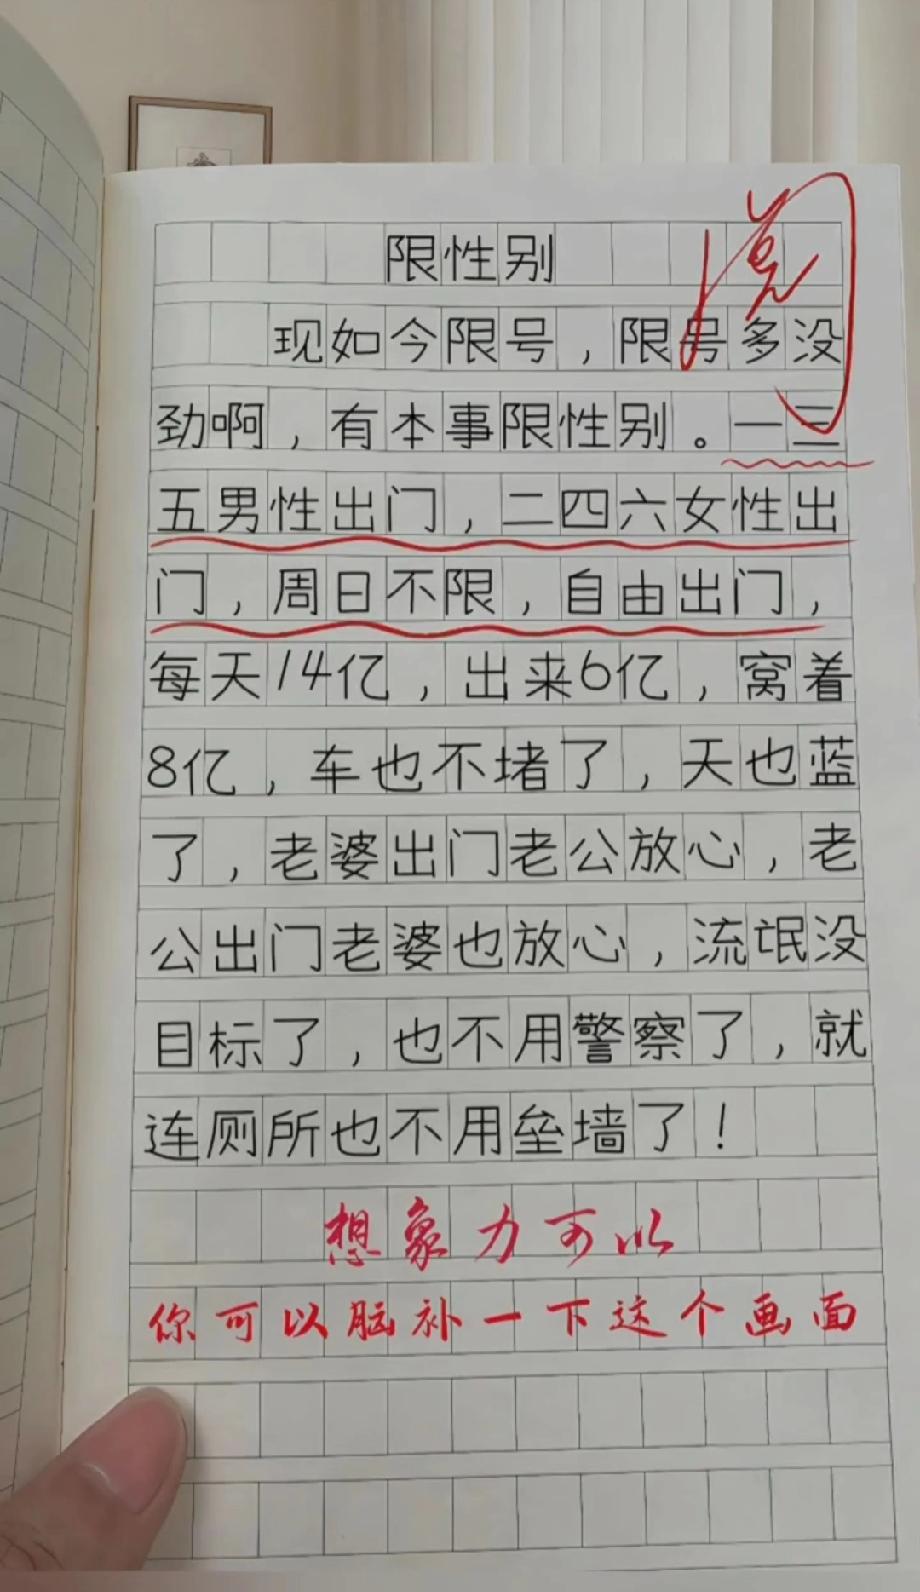 限性别
阅
现如今限号，限号多没
劲啊，有本事限性别。一三
五男性出门，二四六女性出
门，周日不限，自由出门，
每天14亿，出来6亿，窝着
8亿，车也不堵了，天也蓝
了，老婆出门老公放心，老
公出门老婆也放心，流氓没
目标了，也不用警察了，就
连厕所也不用垒墙了！
想象力可以
你可以脑补一下这个画面